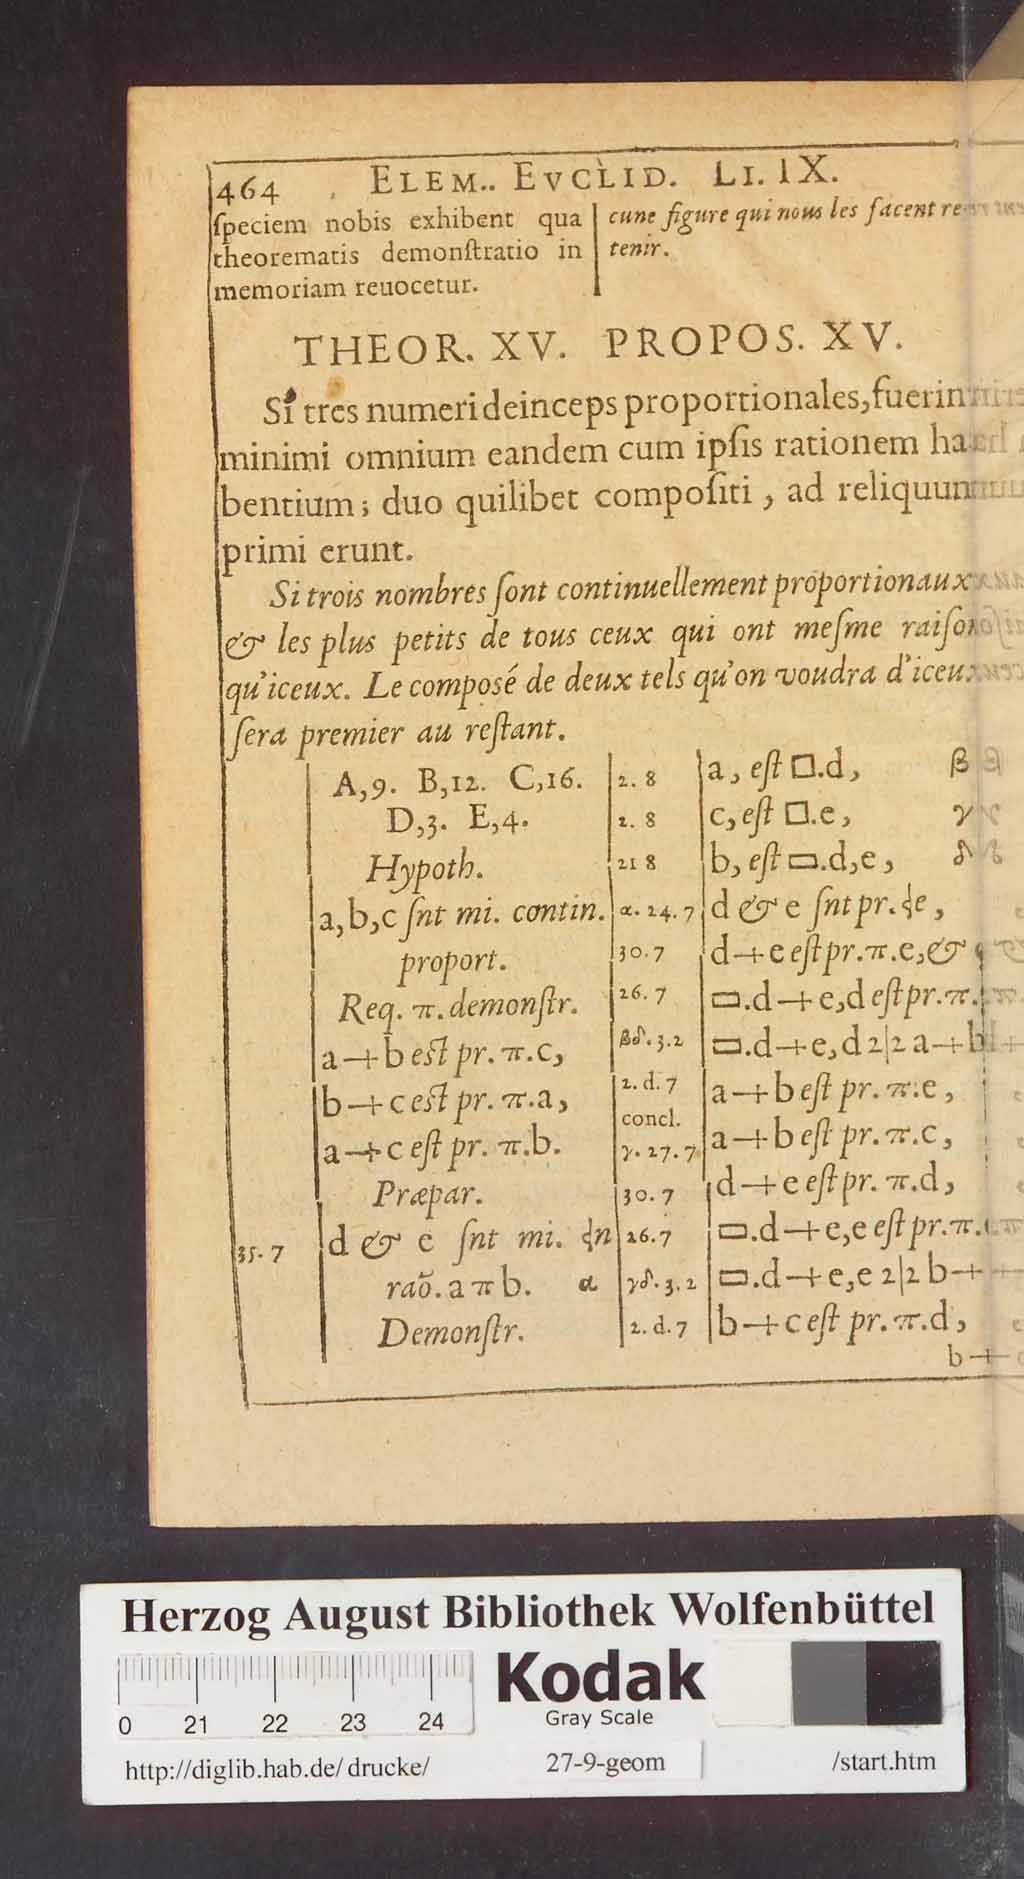 464 ELEM.. EVCLID. LI. IX.
ſpeciem nobis exhibent qua
theorematis demonſtratio in
memoriam reuocetur.
cune figure qui nous les facent re-
tenir.
THEOR. XV. PROPOS. XV.
Si tres numeri deinceps proportionales, fuerin
minimi omnium eandem cum ipſis rationem ha-
bentium; duo quilibet compoſiti, ad reliquum
primi erunt.
Si trois nombres ſont continuellement proportionaux
& les plus petits de tous ceux qui ont meſme raiſon
qu'iceux. Le composé de deux tels qu'on voudra d'iceux
ſera premier au reſtant.
A,9. B,12. C,16.
D,3. E,4.
Hypoth.
a,b,c ſnt mi. contin.
proport.
Req. π. demonſtr.
a+b eſt pr. π.c,
b+c eſt pr. π.a,
a+c eſt pr. π.b.
Præpar.
35.7 d & e ſnt mi. ꝗn
raõ. a π b. α
Demonſtr.
2. 8 a, eſt □.d, β
2. 8 c, eſt □.e, γ
21 8 b, eſt ▭.d,e, δ
α. 24. 7 d & e ſnt pr. ꝗe,
30. 7 d+e eſt pr. π.e, &
26. 7 ▭.d+e,d eſt pr. π.
βδ. 3. 2 ▭.d+e,d 2|2 a+b
2. d. 7 a+b eſt pr. π.e,
concl.
γ. 27. 7 a+b eſt pr. π.c,
30. 7 d+e eſt pr. π.d,
26. 7 ▭.d+e,e eſt pr. π.
γδ. 3. 2 ▭.d+e,e 2|2 b+
2. d. 7 b+c eſt pr. π.d,
b+
Herzog August Bibliothek Wolfenbüttel
0 21 22 23 24
Kodak
Gray Scale
http://diglib.hab.de/drucke/ 27-9-geom /start.htm